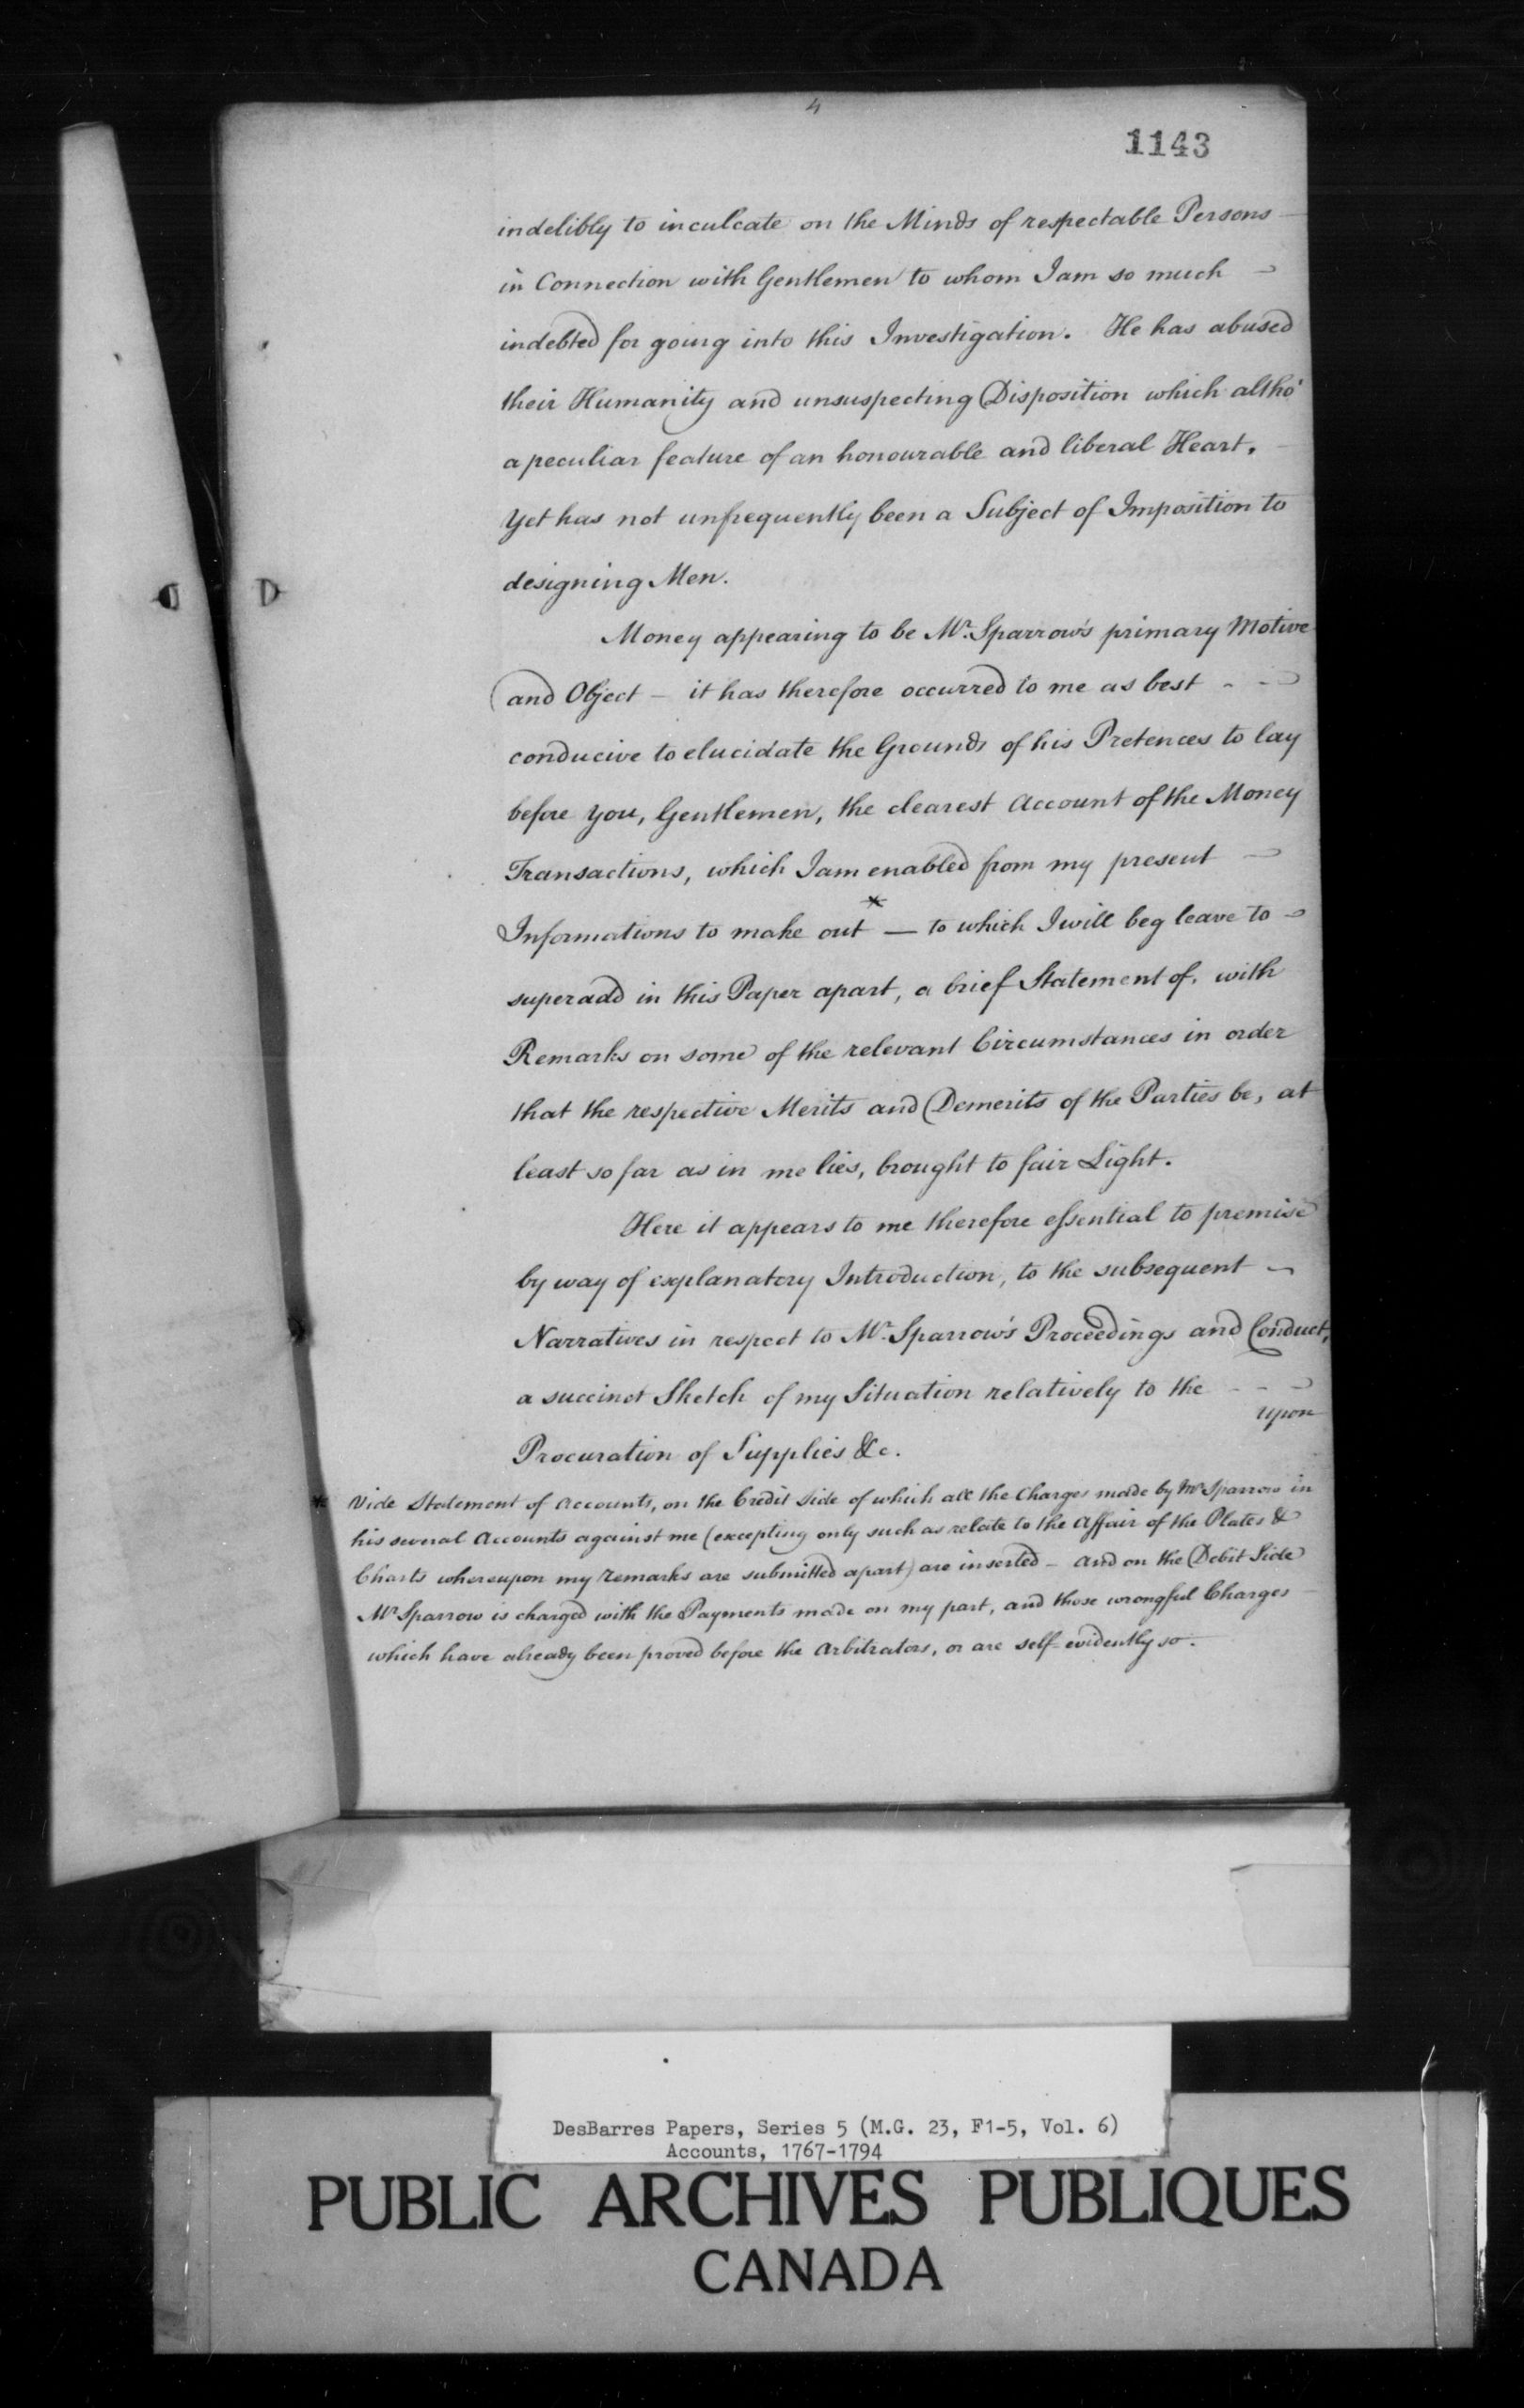 4
1143
indelibly to inculcate on the Minds of respectable Persons
in Connection with Gentlemen to whom I am so much
indebted for going into this Investigation. He has abused
their Humanity and unsuspecting Disposition which altho'
a peculiar feature of an honourable and liberal Heart,
Yet has not unfrequently been a Subject of Imposition to
designing Men.
Money appearing to be Mr. Sparrow's primary Motive
and Object — it has therefore occurred to me as best - -
conducive to elucidate the Grounds of his Pretences to lay
before you, Gentlemen, the clearest Account of the Money
Transactions, which I am enabled from my present
Informations to make out * — to which I will beg leave to
superadd in this Paper apart, a brief Statement of, with
Remarks on some of the relevant Circumstances in order
that the respective Merits and Demerits of the Parties be, at
least so far as in me lies, brought to fair Light.
Here it appears to me therefore essential to premise
by way of explanatory Introduction, to the subsequent
Narratives in respect to Mr. Sparrow's Proceedings and Conduct,
a succinct Sketch of my Situation relatively to the - -
Procuration of Supplies &c.
upon
* Vide Statement of Accounts, on the Credit Side of which all the Charges made by Mr Sparrow in
his several Accounts against me (excepting only such as relate to the Affair of the Plates &
Charts whereupon my Remarks are submitted apart) are inserted — And on the Debit Side
Mr Sparrow is charged with the Payments made on my part, and those wrongful Charges
which have already been proved before the Arbitrators, or are self-evidently so.
DesBarres Papers, Series 5 (M.G. 23, F1-5, Vol. 6)
Accounts, 1767-1794
PUBLIC ARCHIVES PUBLIQUES
CANADA